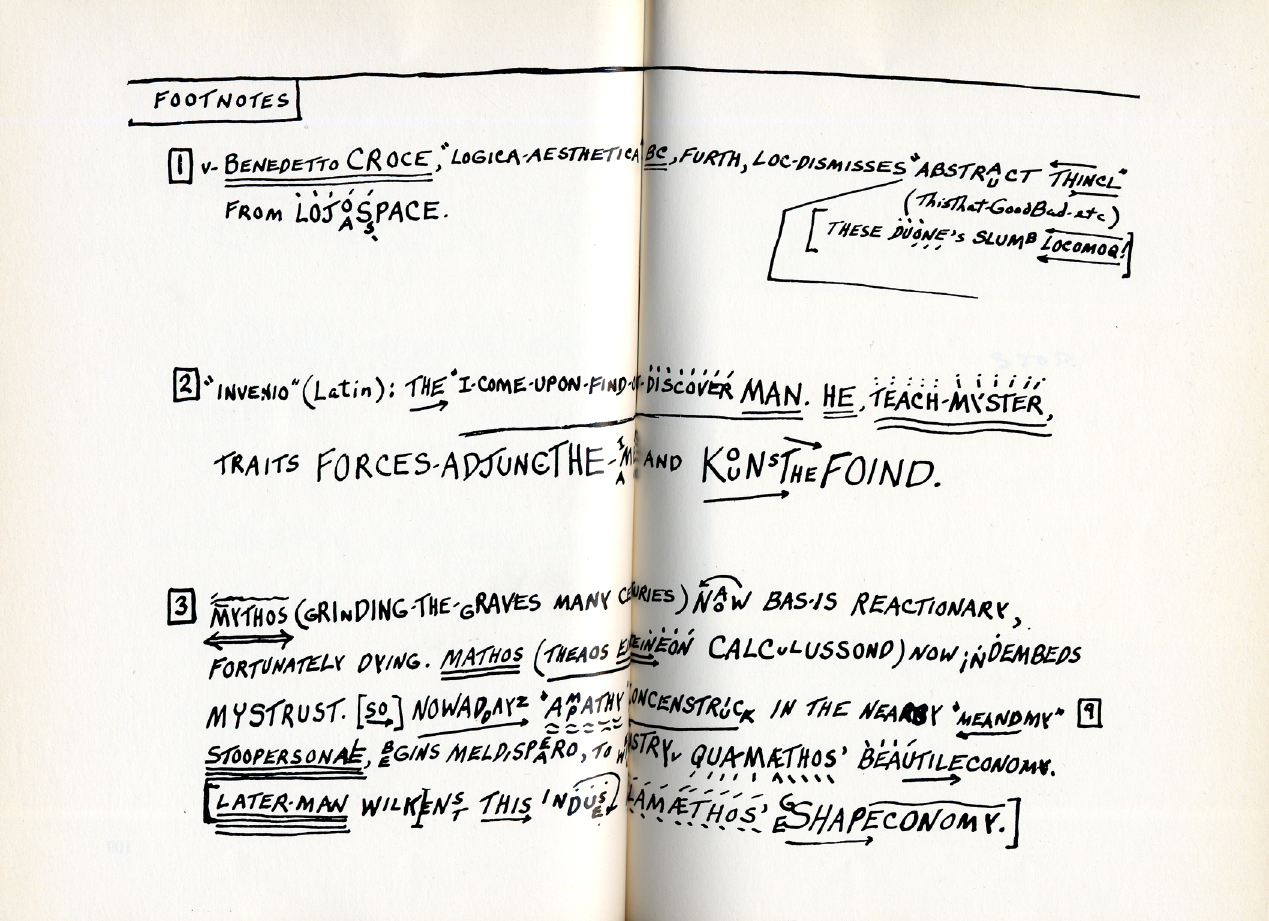 FOOTNOTES
1 v- BENEDETTO CROCE, "LOGICA-AESTHETICA" BC, FURTH, LOC-DISMISSES "ABSTRAUCT THINCL"
FROM LOJOASSPACE.
(ThisThat-GoodBad-etc)
[THESE DUONE's SLUMB LOCOMOQ!]
2 "INVENIO" (Latin): THE "I-COME-UPON-FIND- DISCOVER MAN. HE, TEACH-MYSTER,
TRAITS FORCES-ADJUNCTHE- AND KOUNSTHEFOIND.
3 MYTHOS (GRINDING-THE-GRAVES MANY CENTURIES) NAOW BAS-IS REACTIONARY,
FORTUNATELY DYING. MATHOS (THEAOS CALCULUSSOND) NOW INDEMBEDS
MYSTRUST. [SO] NOWADAYZ "AMPATHY" IN THE NEARBY "MEANDMY" 9
STOOPERSONAE, BEGINS MELDISPEARO, TO QUA-MÆTHOS' BEAUTILECONOMY.
[LATER-MAN WILKENST THIS GESHAPECONOMY.]